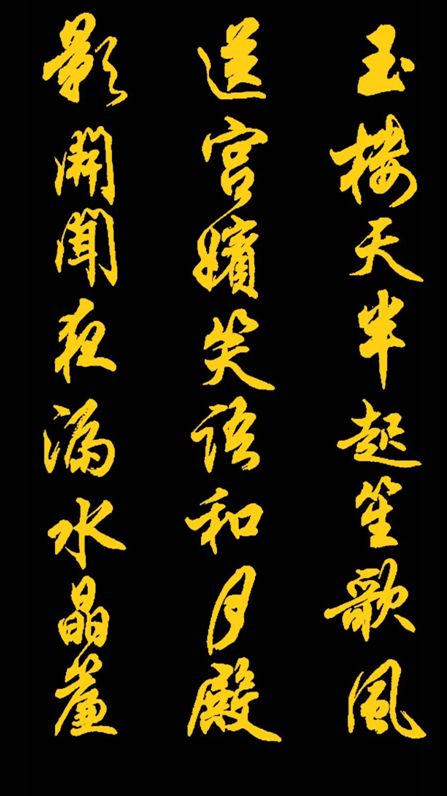 玉樓天半起笙歌風
送宮嬪笑語和月殿
影開聞夜漏水晶簾